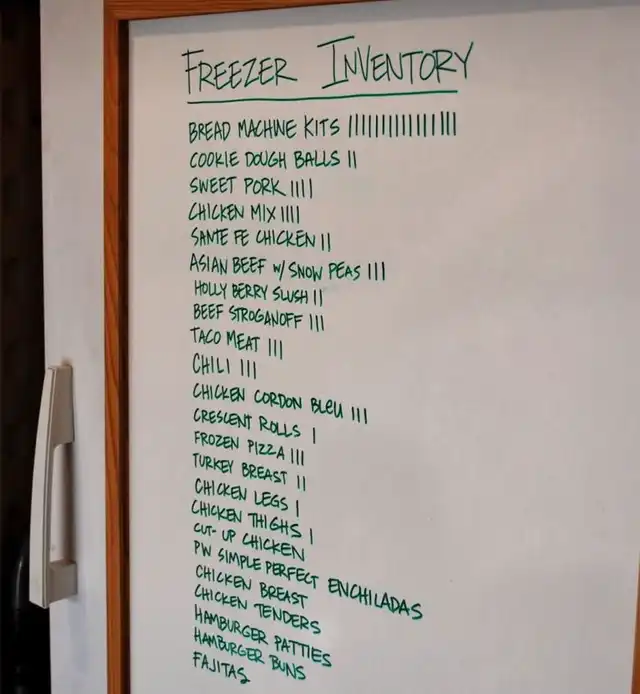 FREEZER INVENTORY
BREAD MACHINE KITS ||||||||||||||||
COOKIE DOUGH BALLS ||
SWEET PORK ||||
CHICKEN MIX ||||
SANTE FE CHICKEN ||
ASIAN BEEF W/ SNOW PEAS |||
HOLLY BERRY SLUSH ||
BEEF STROGANOFF |||
TACO MEAT |||
CHILI |||
CHICKEN CORDON BLEU |||
CRESCENT ROLLS |
FROZEN PIZZA |||
TURKEY BREAST ||
CHICKEN LEGS |
CHICKEN THIGHS |
CUT-UP CHICKEN
PW SIMPLE PERFECT ENCHILADAS
CHICKEN BREAST
CHICKEN TENDERS
HAMBURGER PATTIES
HAMBURGER BUNS
FAJITAS